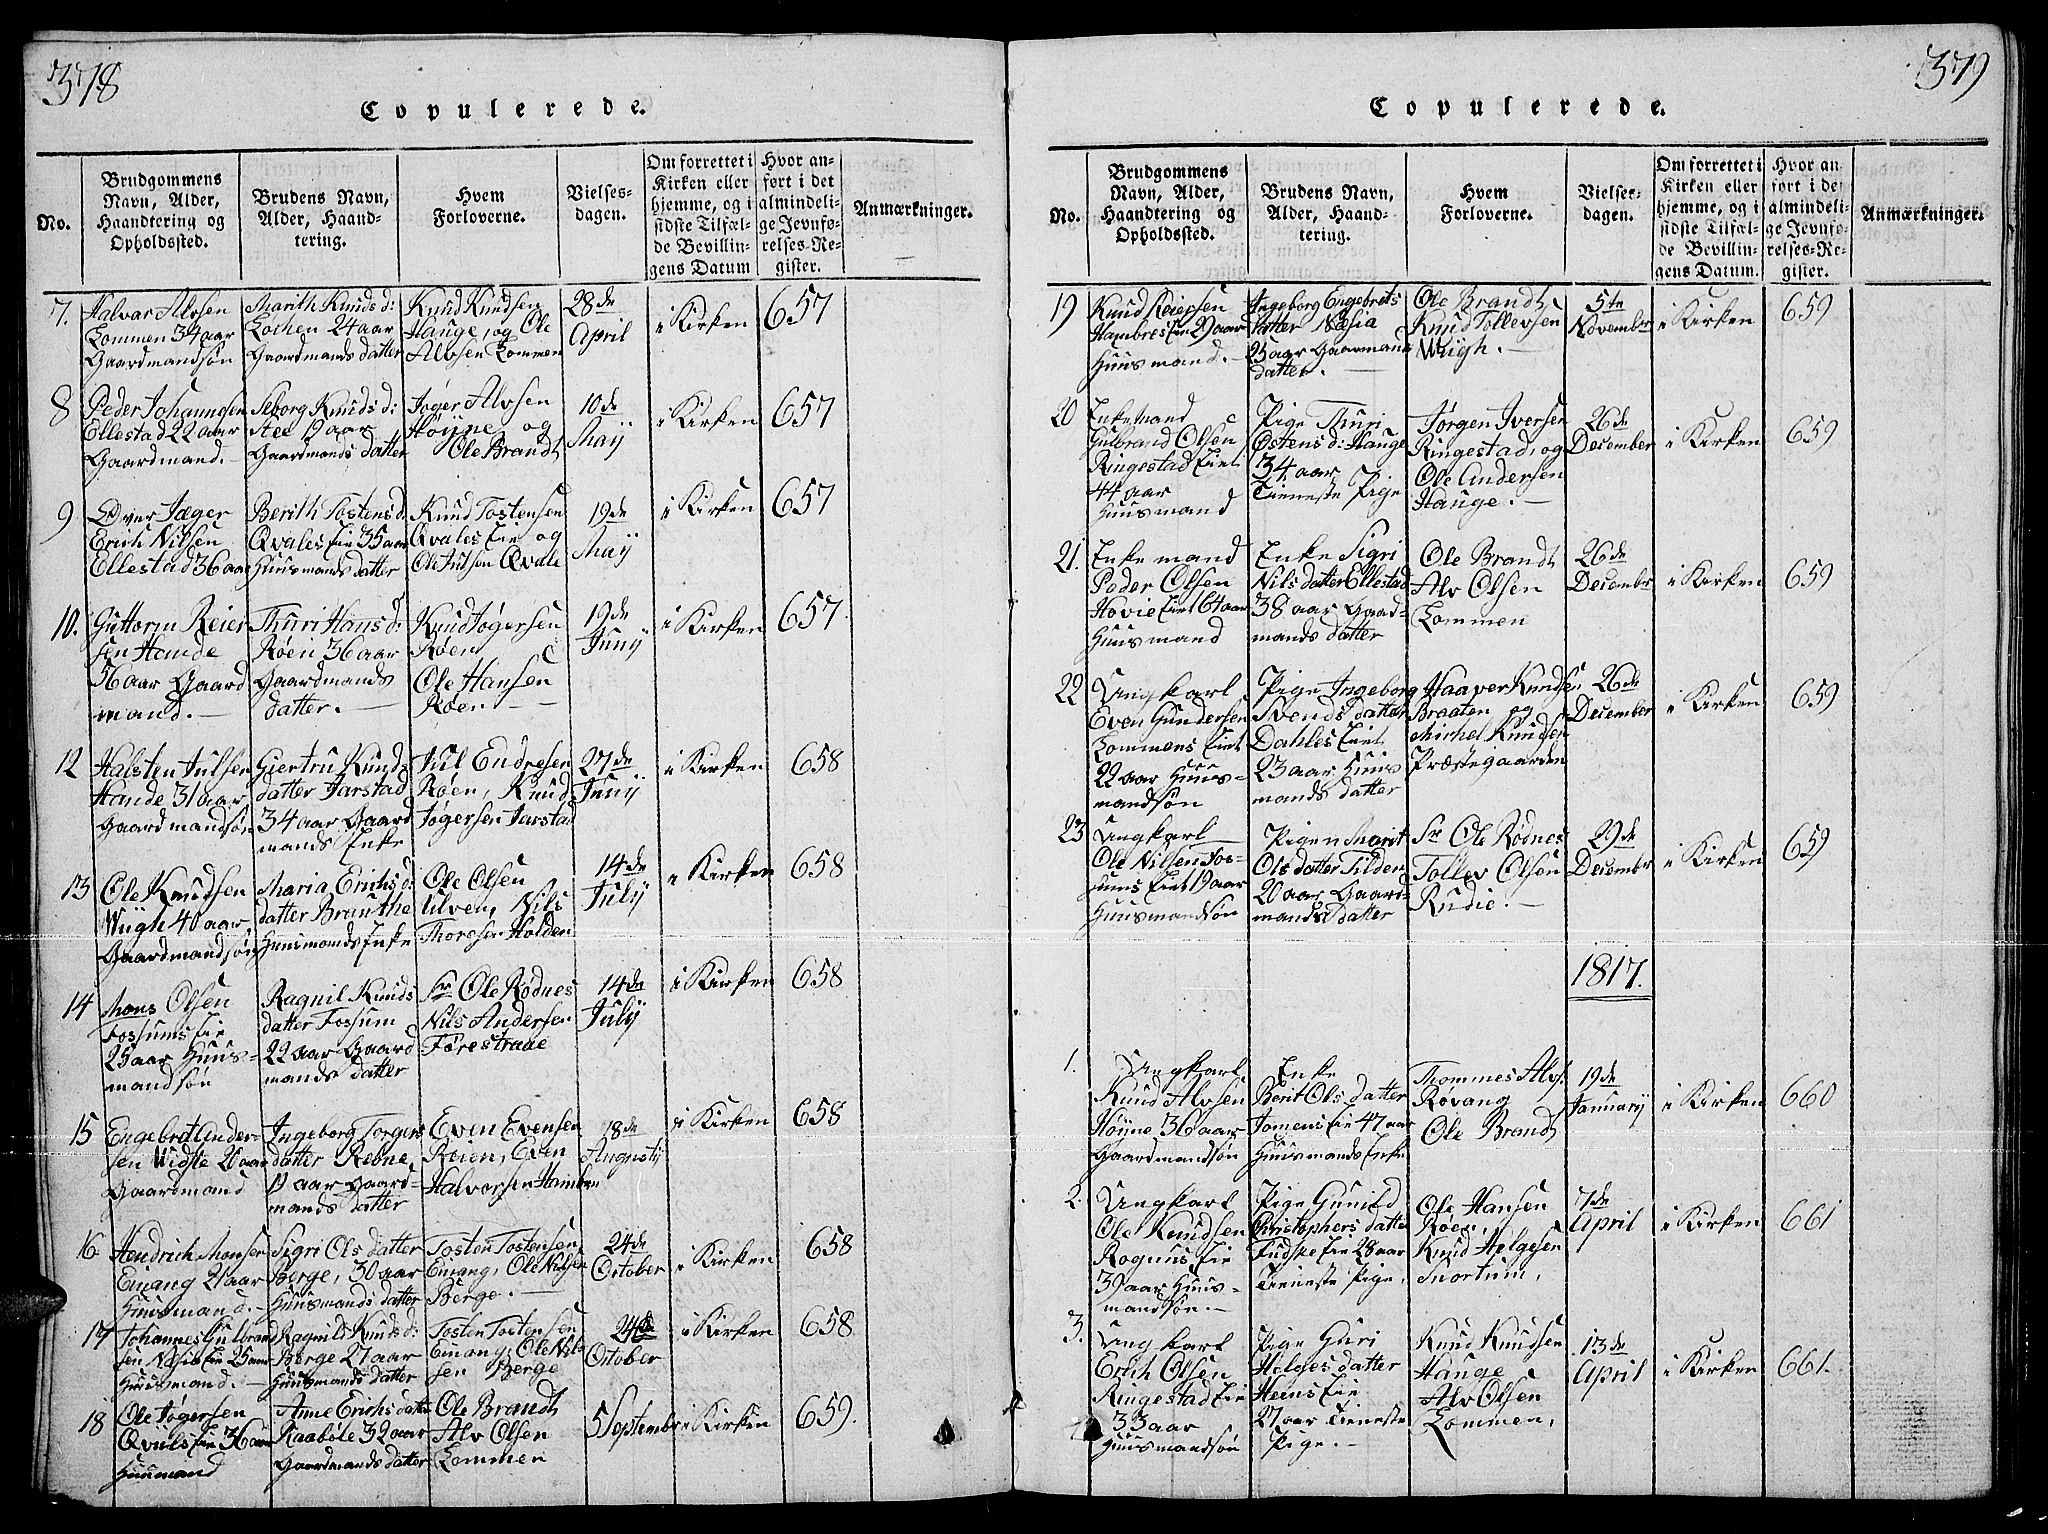 378
Copulerede.
No.
Brudgommens
Navn, Alder,
Haandtering og
Opholdssted.
Brudens Navn,
Alder, Haand-
tering.
Hvem
Forloverne.
Vielses-
dagen.
Om forrettet i
Kirken eller
hjemme, og i
sidste Tilfæl-
de Bevillin-
gens Datum
Hvor an-
ført i det
almindeli-
ge Jevnfø-
relses-Re-
gister.
Anmærkninger.
7.
Halvar Alvsen
Lommen 34 aar
Gaardmandsøn
Marith Knuds d:
Lochen 24 aar
Gaardmands datter
Knud Knudsen
Hauge, og Ole
Alvsen Lommen
28de
April
i Kirken
657
8
Peder Johannesen
Ellestad 22 aar
Gaardmand.
Seborg Knuds d:
Aee 19 aar
Gaardmands datter
Jøger Alvsen
Høyne og
Ole Brandt
10de
Maij
i Kirken
657
9
Erich Nilsen
Ellestad 36 aar
Berith Tostens d.
Qvales Eie 35 aar
Huusmands datter
Knud Tostensen
Qvales Eie og
Ole Julsen Qvale
19de
Maij
i Kirken
657
10.
Guttorm Reier
sen Hande
36 aar Gaard
mand.
Thuri Hans d:
Røen 36 aar
Gaardmands
datter.
Knud Jøgersen
Røen
Ole Hansen
Røen
19de
Junij
i Kirken
657
12
Halsten Julsen
Hande 31 aar
Gaardmandsøn
Giertru Knuds
datter Jarstad
34 aar Gaard
mands Enke
Jul Endresen
Røen, Knud
Jøgersen Jarstad
27de
Junij
i Kirken
658
13
Ole Knudsen
Wiigh 40 aar
Gaardmandsøn
Maria Erichs d:
datter Branthe
Huusmands Enke
Ole Olsen
Ulven, Nils
Thoresen Holden
14de
Julij
i Kirken
658
14
Mons Olsen
Fossums Eie
25 aar Huus-
mandsøn
Ragnil Knuds
datter Fossum
22 aar Gaard
mands datter
Sr Ole Rødnes
Nils Andersen
Førestraae
14de
Julij
i Kirken
658
15
Engebret Ander-
sen Widste 20 aar
Gaardmand
Ingeborg Torgers
datter Rebne
19 aar Gaard-
mands datter
Even Evensen
Reien, Even
Halvorsen Hamben
18de
Augustij
i Kirken
658
16
Hendrich Monsen
Einang 21 aar
Huusmand.
Sigri Ols datter
Berge, 30 aar
Huusmands datter
Tosten Tostensen
Einang, Ole Nilsen
Berge.
24de
October
i Kirken
658
17
Johannes Gulbrand
sen Næsie Eie 25 aar
Huusmand.
Ragnild Knuds d:
Berge 27 aar
Huusmands datter
Tosten Tostensen
Einang, Ole Nil-
sen Berge
24de
October
i Kirken
658
18
Ole Jøgersen
Qviils Eie 36 aar
Huusmand
Anne Erichs datter
Raaböle 32 aar
Gaardmands datter
Ole Brandt
Alv Olsen
Lommen
5 September
i Kirken
659.
379
Copulerede.
No.
Brudgommens
Navn, Alder,
Haandtering og
Opholdssted.
Brudens Navn,
Alder, Haand-
tering.
Hvem
Forloverne.
Vielses-
dagen.
Om forrettet i
Kirken eller
hjemme, og i
sidste Tilfæl-
de Bevillin-
gens Datum.
Hvor an
ført i det
almindeli-
ge Jevnfø-
relses-Re-
gister.
Anmærkninger.
19
Knud Reiersen
Hambres Eie 29 aar
Huusmand.
Ingeborg Engebrits
datter Næsia
25 aar Gaarmands
datter.
Ole Brandt
Knud Tollevsen
Wiigh.
5te
November
i Kirken
659
20
Enkemand
Gulbrand Olsen
Ringestad Eiet
44 aar
Huusmand
Pige Thuri
Østens d: Hauge
34 aar
Tieneste Pige
Jørgen Iversen
Ringestad, og
Ole Andersen
Hauge.
26de
December
i Kirken
659
21.
Enke mand
Peder Olsen
Hovie Eiet 64 aar
Huusmand
Enke Sigri
Nils datter Ellestad
38 aar Gaad-
mands datter
Ole Brandt
Alv Olsen
Lommen
26de
December
i Kirken
659
22
Ungkarl
Even Gundersen
Lommens Eiet
22 aar Huus-
mandsøn
Pige Ingeborg
Svends datter
Dahles Eiet
23 aar Huus
mands datter
Haaver Knudsen
Braaten og
Michel Knudsen
Præstegaarden
26de
December
i Kirken
659
23
Ungkarl
Ole Nilsen Fos-
sums Eiet 19 aar
Huusmandsøn
Pigen Marit
Ols datter Tilden
20 aar Gaard-
mands datter
Sr Ole Rødnes
Tollev Olsen
Rudie.
29de
December
i Kirken
659
1817.
1.
Ungkarl
Knud Alvsen
Høyne 36 aar
Gaardmandsøn
Enke
Berit Ols datter
Jomens Eie 47 aar
Huusmands Enke
Thommes Alvs.
Røvang
Ole Brandt
19de
Januarij
i Kirken
660
2.
Ungkarl
Ole Knudsen
Rognus Eie
39 aar Huus-
mandsøn.
Pige Gunild
Christophers datter
Fudske Eie 28 aar
Tieneste Pige.
Ole Hansen
Røen,
Knud Helgesen
Snortum,
7de
April
i Kirken
661
3.
Ungkarl
Erich Olsen
Ringestad Eie
33 aar
Huusmandsøn
Pige Guri
Helges datter
Heens Eie
27 aar Tieneste
Pige.
Knud Knudsen
Hauge
Alv Olsen
Lommen,
13de
April
i Kirken
661.